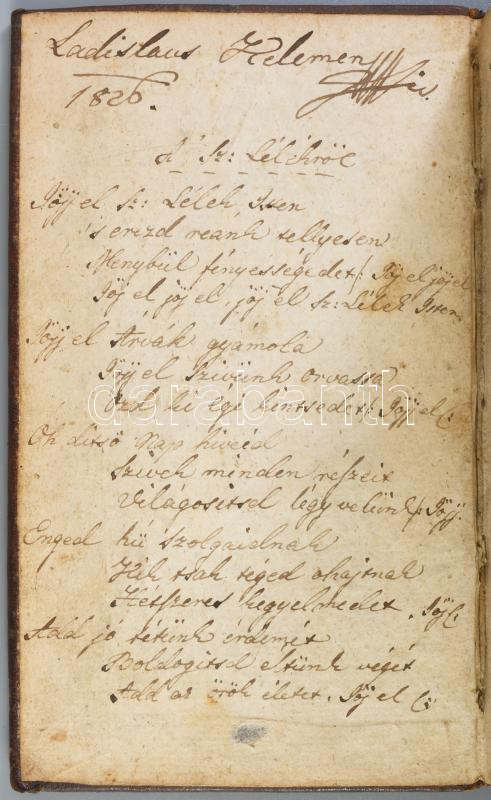 Ladislaus Kelemen
1826.
A' Sz: Lélekröl
Jöjj el Sz: Lélek Isten
's erezd reánk tellyesen
Menybül fényességedet /: Jöj el jöj el
Jöj el jöj el, jöj el Sz: Lélek Isten
Jöjj el Árvák gyámola
Jöjj el Szivünk orvassa
Oszd ki égi kintsedet /: Jöjj el (:
Oh ditső Nap hiveid
Szivek minden részeit
Világositsd légy velünk /: Jöjj.
Enged hü szolgaidnak
Kik tsak téged ohajtnak
Hétszeres kegyelmedet. Jöj (:
Add jó tétünk érdemét
Boldogitsd éltünk végét
Add az örök életet. Jöj el (:
darabanth